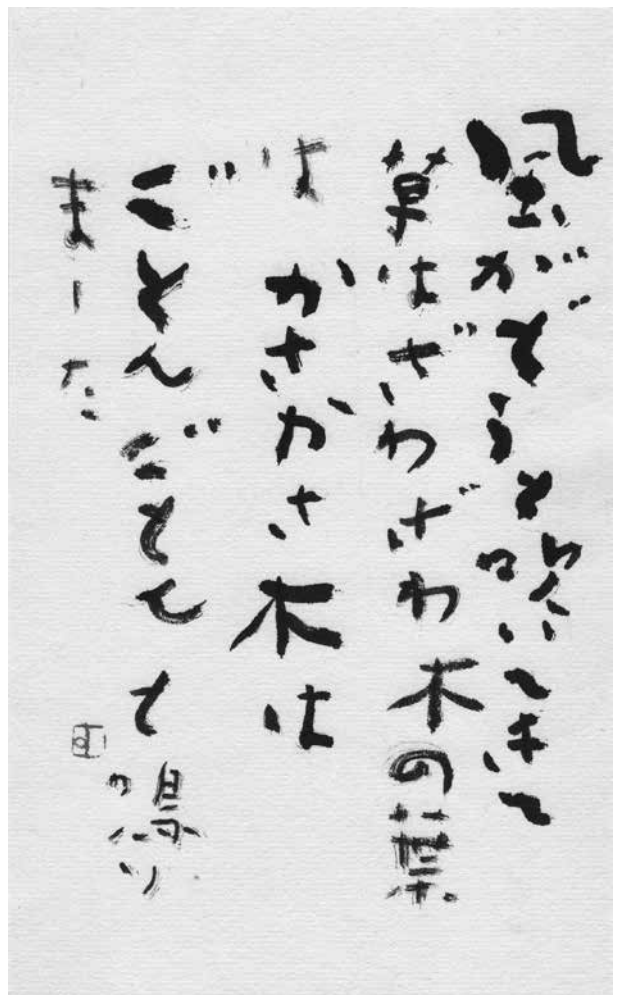 風がどうと吹いてきて
草はざわざわ木の葉
はかさかさ木は
ごとんごとんと鳴り
ました